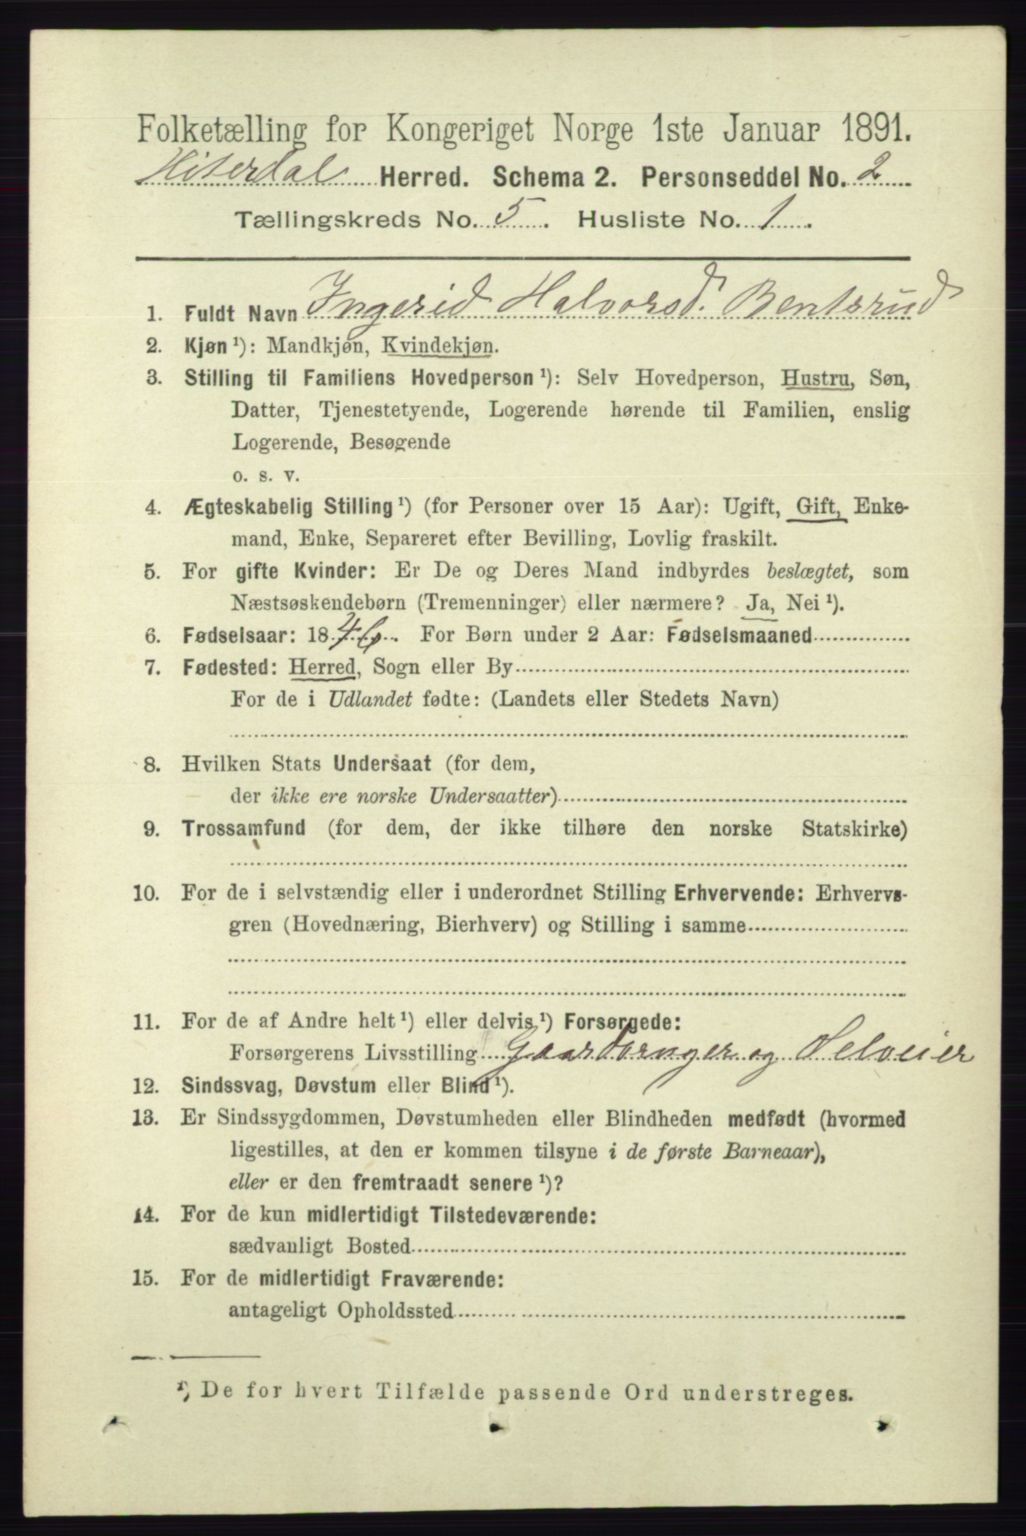 Folketælling for Kongeriget Norge 1ste Januar 1891.
Hiterdal Herred. Schema 2. Personseddel No. 2
Tællingskreds No. 5. Husliste No. 1.
1. Fuldt Navn Ingerid Halvorsd. Bentsrud
2. Kjøn ¹): Mandkjøn, Kvindekjøn.
3. Stilling til Familiens Hovedperson ¹): Selv Hovedperson, Hustru, Søn,
Datter, Tjenestetyende, Logerende hørende til Familien, enslig
Logerende, Besøgende
o. s. v.
4. Ægteskabelig Stilling ¹) (for Personer over 15 Aar): Ugift, Gift, Enke-
mand, Enke, Separeret efter Bevilling, Lovlig fraskilt.
5. For gifte Kvinder: Er De og Deres Mand indbyrdes beslægtet, som
Næstsøskendebørn (Tremenninger) eller nærmere? Ja, Nei ¹).
6. Fødselsaar: 1846. For Børn under 2 Aar: Fødselsmaaned
7. Fødested: Herred, Sogn eller By
For de i Udlandet fødte: (Landets eller Stedets Navn)
8. Hvilken Stats Undersaat (for dem,
der ikke ere norske Undersaatter)
9. Trossamfund (for dem, der ikke tilhøre den norske Statskirke)
10. For de i selvstændig eller i underordnet Stilling Erhvervende: Erhvervs-
gren (Hovednæring, Bierhverv) og Stilling i samme
11. For de af Andre helt ¹) eller delvis ¹) Forsørgede:
Forsørgerens Livsstilling Gaardbruger og Selveier
12. Sindssvag, Døvstum eller Blind ¹).
13. Er Sindssygdommen, Døvstumheden eller Blindheden medfødt (hvormed
ligestilles, at den er kommen tilsyne i de første Barneaar),
eller er den fremtraadt senere ¹)?
14. For de kun midlertidigt Tilstedeværende:
sædvanligt Bosted
15. For de midlertidigt Fraværende:
antageligt Opholdssted
¹) De for hvert Tilfælde passende Ord understreges.